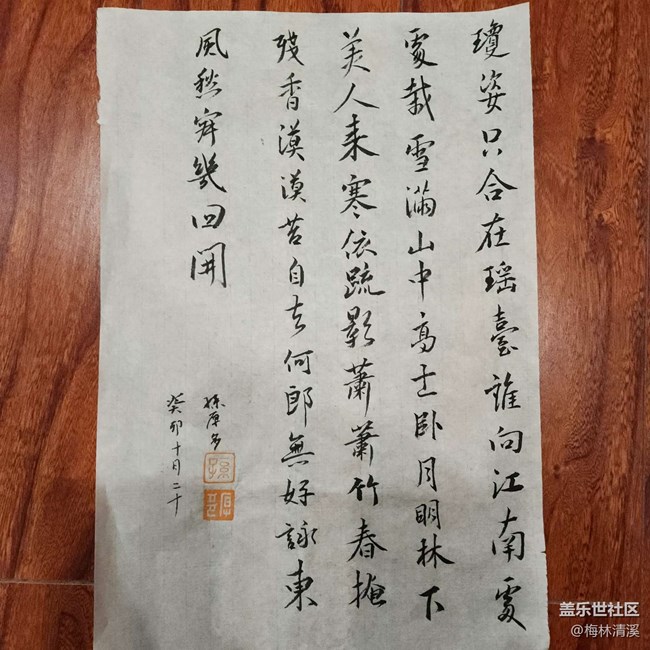 瓊姿只合在瑤臺誰向江南處
處栽雪滿山中高士臥月明林下
美人來寒依疏影蕭蕭竹春掩
殘香漠漠苔自去何郎無好詠東
風愁寂幾回開
孫
癸卯十月二十
盖乐世社区
@梅林清溪